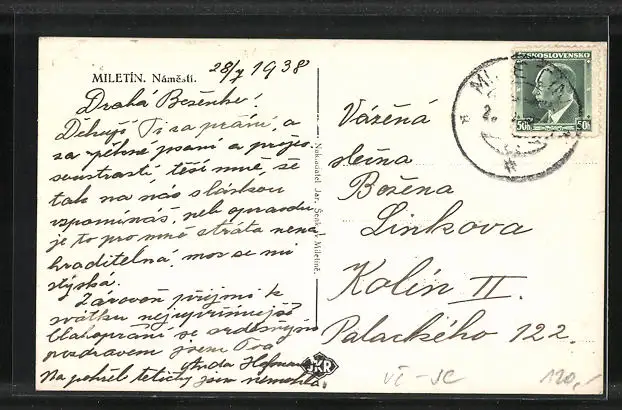 MILETÍN. Náměstí.
28/7 1938
Drahá Boženko!
Děkuji Ti za přání, a
za pěkné psaní a projev
soustrasti, těší mně, že
tak na nás s láskou
vzpomínáš, neb opravdu
je to pro mně ztráta nena
hraditelná, moc se mi
stýská.
Zároveň přijmi k
svátku nejupřímnější
blahopřání se srdečným
pozdravem jsem Tvá
Anda
Na pohřeb tetičky jsem nemohla.
Nakladatel Jar. Šenk, Miletín.
JKR
Vážená
slečna
Božena
Linkova
Kolín II.
Palackého 122.
ČESKOSLOVENSKO
50h 50h
VČ - JC
120,-